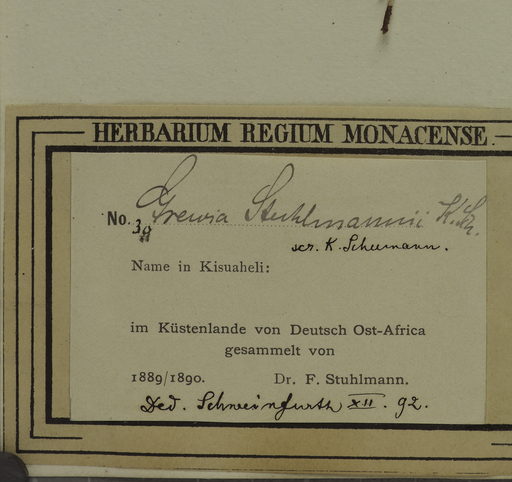 HERBARIUM REGIUM MONACENSE.
No. 39 Grewia Stuhlmannii K. Sch.
scr. K. Schumann.
Name in Kisuaheli:
im Küstenlande von Deutsch Ost-Africa
gesammelt von
1889/1890. Dr. F. Stuhlmann.
Ded. Schweinfurth XII. 92.